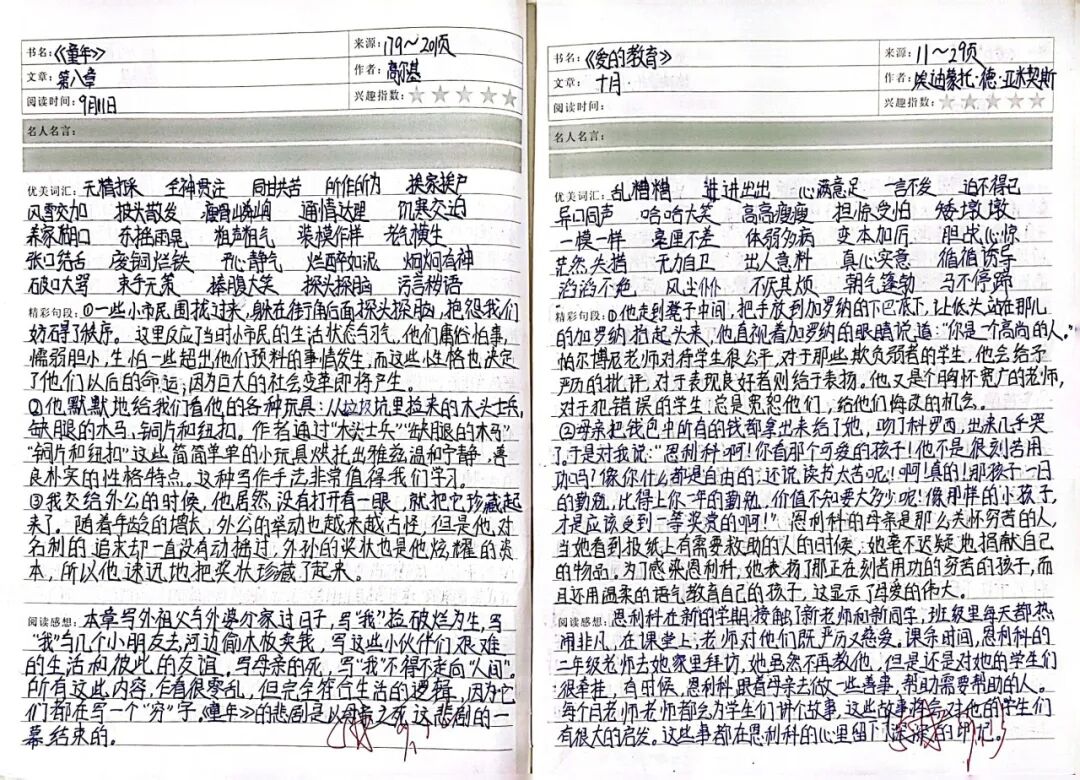 书名:《童年》
来源:179～201页
文章:第八章
作者:高尔基
阅读时间:9月11日
兴趣指数:
名人名言:
优美词汇:无精打采 全神贯注 同甘共苦 所作所为 挨家挨户
风雪交加 披头散发 瘦骨嶙峋 通情达理 饥寒交迫
养家糊口 东摇西晃 粗声粗气 装模作样 老气横生
张口结舌 废铜烂铁 平心静气 烂醉如泥 炯炯有神
破口大骂 束手无策 捧腹大笑 探头探脑 污言秽语
精彩句段:①一些小市民围找过来,躲在街角后面探头探脑,抱怨我们
妨碍了秩序。这里反应了当时小市民的生活状态与习气,他们庸俗怕事,
懦弱胆小,生怕一些超出他们预料的事情发生,而这些性格也决定
了他们以后的命运;因为巨大的社会变革即将产生。
②他默默地给我们看他的各种玩具:从垃圾坑里捡来的木头士兵,
缺腿的木马、铜片和纽扣。作者通过“木头士兵”“缺腿的木马”
“铜片和纽扣”这些简简单单的小玩具烘托出雅兹温和宁静,善
良朴实的性格特点。这种写作手法非常值得我们学习。
③我交给外公的时候,他居然没有打开看一眼,就把它珍藏起
来了。随着年龄的增长,外公的举动也越来越古怪,但是他对
名利的追求却一直没有动摇过,外孙的奖状也是他炫耀的资
本,所以他迅速地把奖状珍藏了起来。
阅读感想:本章写外祖父与外婆分家过日子,写“我”捡破烂为生,写
“我”与几个小朋友去河边偷木板卖钱,写这些小伙伴们艰难
的生活和彼此的友谊。写母亲的死,写“我”不得不走向“人间”。
所有这些内容,乍看很零乱,但完全符合生活的逻辑,因为它
们都在写一个“穷”字。《童年》的悲剧是以母亲之死这悲剧的一
幕结束的。
书名:《爱的教育》
来源:11～29页
文章:十月
作者:埃迪蒙托·德·亚米契斯
阅读时间:
兴趣指数:
名人名言:
优美词汇:乱糟糟 进进出出 心满意足 一言不发 迫不得已
异口同声 哈哈大笑 高高瘦瘦 担惊受怕 矮墩墩
一模一样 毫厘不差 体弱多病 变本加厉 胆战心惊
茫然失措 无力自卫 出人意料 真心实意 循循诱导
滔滔不绝 风尘仆仆 不厌其烦 朝气蓬勃 马不停蹄
精彩句段:①他走到凳子中间,把手放到加罗纳的下巴底下,让低头站在那儿
的加罗纳抬起头来,他直视着加罗纳的眼睛说道:“你是一个高尚的人。”
帕尔博尼老师对待学生很公平,对于那些欺负弱者的学生,他会给予
严厉的批评,对于表现良好者则给于表扬。他又是个胸怀宽广的老师,
对于犯错误的学生总是宽恕他们,给他们悔改的机会。
②母亲把钱包中所有的钱都拿出来给了她,吻了科罗西,出来几乎哭
了。于是对我说:“恩利科啊!你看那个可爱的孩子!他不是很刻苦用
功吗?像你什么都是自由的;还说读书太苦呢!啊!真的!那孩子一日
的勤勉,比得上你一年的勤勉,价值不知要大多少呢!像那样的小孩子,
才是应该受到一等奖赏的啊!”恩利科的母亲是那么关怀穷苦的人,
当她看到报纸上有需要救助的人的时候,她毫不迟疑地捐献自己
的物品。为了感染恩利科,她表扬了那正在刻苦用功的穷苦的孩子,而
且还用温柔的语气教育自己的孩子,这显示了母爱的伟大。
阅读感想:恩利科在新的学期,接触了新老师和新同学,班级里每天都热
闹非凡,在课堂上,老师对他们既严厉又慈爱。课余时间,恩利科的
二年级老师去她家里拜访,她虽然不再教他,但是还是对她的学生们
很牵挂。有时候,恩利科跟着母亲去做一些善事,帮助需要帮助的人。
每个月老师老师都会为学生们讲个故事,这些故事将会对他的学生们
有很大的启发。这些事都在恩利科的心里留下了深深的印记。